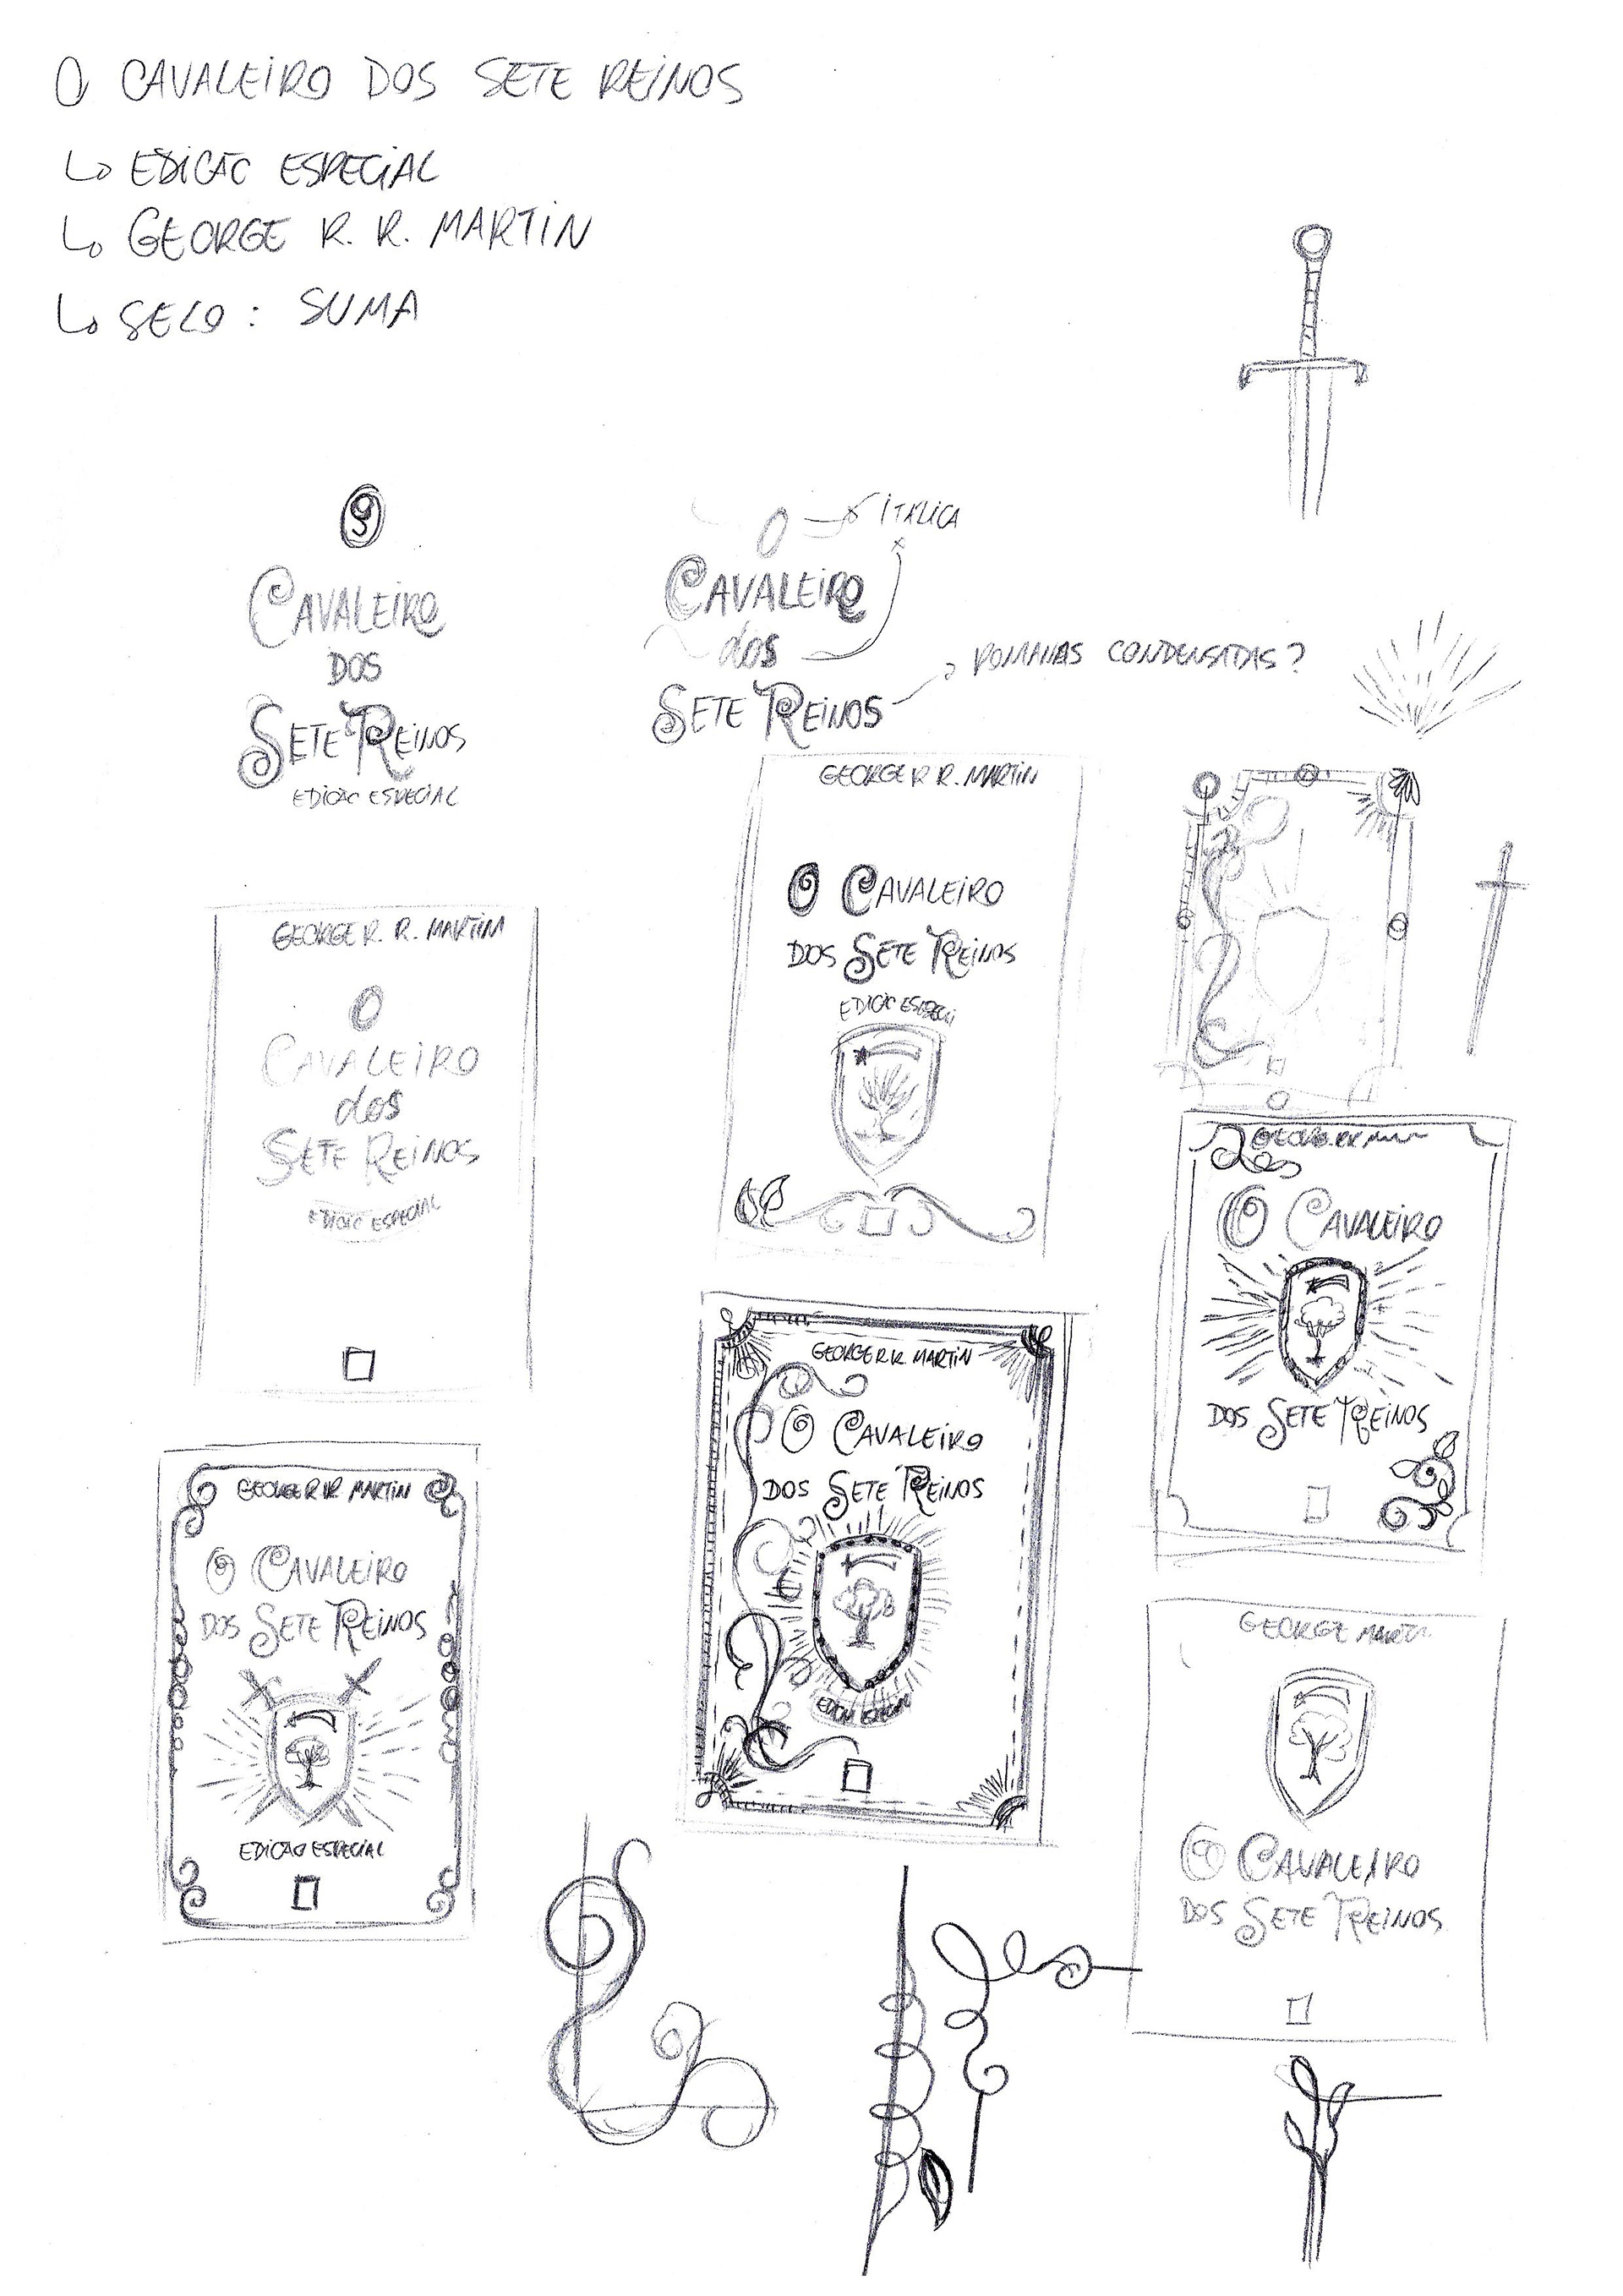 O CAVALEIRO DOS SETE REINOS
EDIÇÃO ESPECIAL
GEORGE R. R. MARTIN
SELO: SUMA
O
CAVALEIRO
DOS
SETE REINOS
EDIÇÃO ESPECIAL
O
ITÁLICA
CAVALEIRO
dos
SETE REINOS
ROMANAS CONDENSADAS?
GEORGE R. R. MARTIN
O
CAVALEIRO
dos
SETE REINOS
EDIÇÃO ESPECIAL
GEORGE R R. MARTIN
O CAVALEIRO
DOS SETE REINOS
EDIÇÃO ESPECI
O CAVALEIRO
DOS SETE REINOS
GEORGE R R MARTIN
O CAVALEIRO
DOS SETE REINOS
EDIÇÃO ESPECIAL
GEORGE R.R. MARTIN
O CAVALEIRO
DOS SETE REINOS
GEORGE MARTI
O CAVALEIRO
DOS SETE REINOS